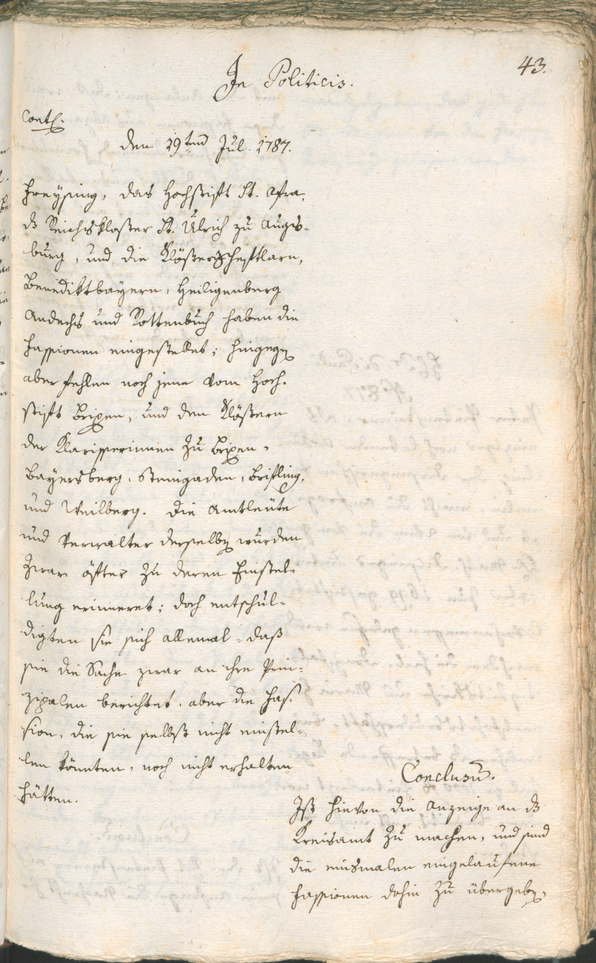 43.
In Politicis.
den 19ten Jul. 1787.
Freysing, das Hochstift St. Afra,
ds Reichskloster St. Ulrich zu Augs-
burg, und die Klöster Scheftlarn,
Benediktbayern, Heiligenberg
Andechs und Rottenbuch haben die
Fassionen eingestellet; hingegen
aber fehlen noch jene vom Hoch-
stift Brixen, und den Klöstern
der Klarisserinnen zu Brixen,
Bayersberg, Steingaden, Brifling,
und Weilberg. Die Amtleüte
und Verwalter derselben wurden
zwar öfter zu deren Einstel-
lung erinneret; doch entschul-
digten sie sich allemal, daß
sie die Sache zwar an ihre Prin-
zipalen berichtet, aber die Fas-
sion, die sie selbst nicht einstel-
len könnten, noch nicht erhalten
hätten.
Conclusum.
Ist hievon die Anzeige an ds
Kreisamt zu machen, und sind
die einsmalen eingelaufene
Fassionen dahin zu übergeben.